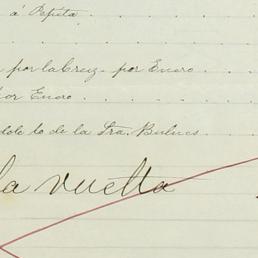 á Pepita
por la Cruz por Enero
por Enero
de la Sra. Bulnes
la vuelta